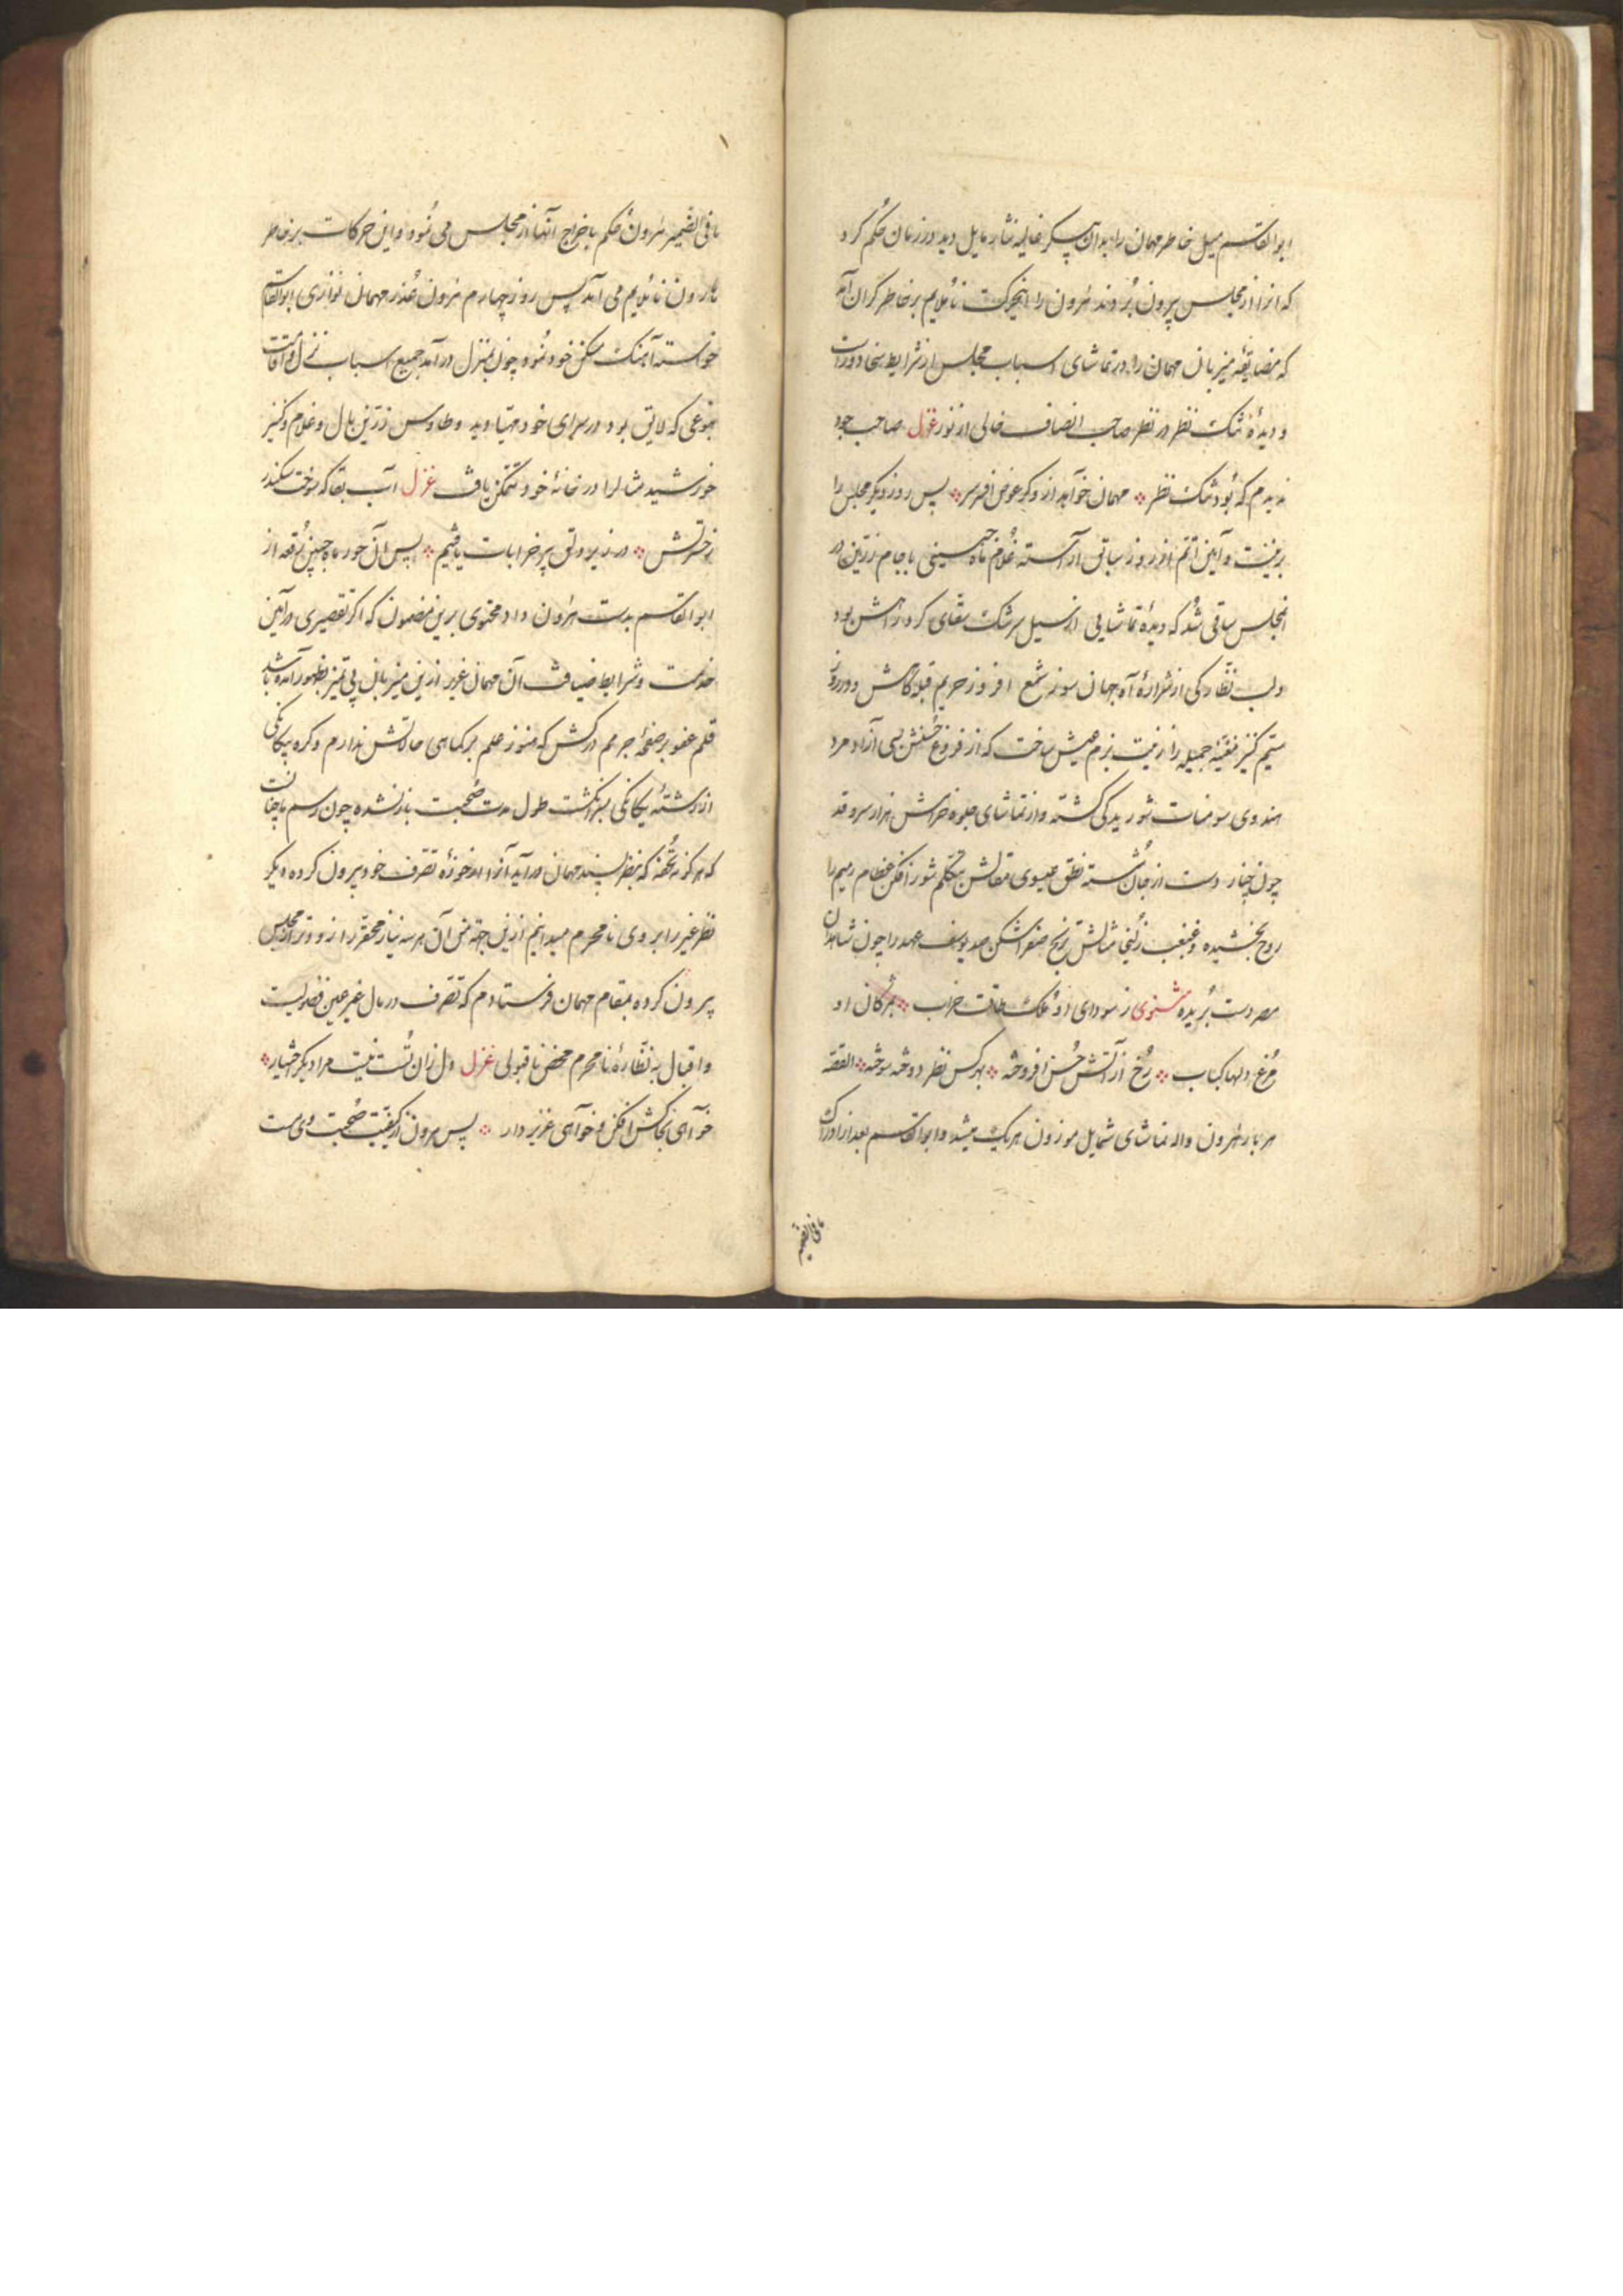 ابوالقاسم میل خاطر مهمان را بدان پیکر غالیه نثار مایل دید در زمان حکم کرد
که انرا از مجلس بیرون بُردند هٰرون را اینحرکت ناملایم بر خاطر کران آمد
که مضایقهٔ میزبان مهمان را در تماشای اسباب مجلس از شرایط سخا دورست
و دیدهٔ تنک نظر در نظر صاحب انصاف خالی از نور غزل صاحب جود
ندیدم که بُود تنک نظر ؞ مهمان خواهد اکر وکر عوض افسر سر ؞ پس روز دیکر مجلس را
بزینت و آیین اتم از روز سابق آراسته غُلام ماه جبینی با جام زرین در
انمجلس ساقی شُد که دیدهٔ تماشایی از سیل سرشک سقای کرد راهش بود
و لب نظارکی از شرارهٔ آه جهان سوز شمع افروز حریم قبله کاهش و در روز
سیم کنیز مغنیه جمیله را زینت بزم عیش ساخت که از فروغ حُسنش بسی آزاد مرد
هندوی سومنات شوریدکی کشته و از تماشای جلوه خرامش هزار سرو قد
چون چنار دست از جان شُسته نطق عیسوی مقالش بتکلم شور افکن عظام رمیم را
روح بخشیده و غبغب زلیخا مثالش ترنج صفرا شکن صد یوسف عهد را چون شاهدان
مصر دست بُریده مثنوی ز سودای او مُلک طاقت خراب ؞ بمژکان او
مُرغ دلها کباب ؞ رُخ از آتش حُسن افروخته ؞ بهر کس نظر دوخته سوخته ؞ القصه
هر بار هٰرون واله تماشای شمایل موزون هریک میشد و ابوالقاسم بعد از ادراک
مافی الضمیر
مافی الضمیر هٰرون حُکم باخراج آنها از مجلس می نمُود و این حرکات بر خاطر
هارون نامُلایم می آمد پس روز چهارم هٰرون عُذر مهمان نوازی ابوالقاسم
خواسته آهنک مسکن خود نمُود چون بمنزل در آمد جمیع اسباب نزل و اقامت
بنوعی که لایق بود در سرای خود مهیا دید و طاوس زرین بال و غلام و کنیز
خورشید مثالرا در خانهٔ خود متمکن یافت غزل آب بقا که سوخت سکندر
ز حسرتش ؞ در زیر دلق پیر خرابات یافتیم ؞ پس آن حور ماه جبین رُقعه از
ابوالقاسم بدست هٰرون داد محتوی برین مضمون که اکر تقصیری در آیین
خدمت و شرایط ضیافت آن مهمان عزیز ازین میزبان بی تمیز بظهور آمده باشد
قلم عفو بر صفحهٔ جرمم درکش که هنوز علم بر کماهی حالاتش ندارم و کره بیکانکی
از رشتهٔ یکانکی بسر انکشت طول مدت صُحبت باز نشده چون رسم ما چنانست
که هر کونه تُحفه که بنظر پسند مهمان در آید آنرا از حوزهٔ تصرف خود بیرون کرده دیکر
نظر غیر را بر وی نامحرم میدانم ازین جهة من آن هر سه نیاز محقر را زود تر از مجلس
بیرون کرده بمقام مهمان فرستادم که تصرف در مال غیر عین فضولیست
و اقبال به نظارهٔ نامحرم محض ناقبولی غزل دل زان تُست نیست مرا دیکر اختیار ؞
خواهی بخاکش افکن و خواهی عزیز دار ؞ پس هرون از کیفیت صُحبت وی مست